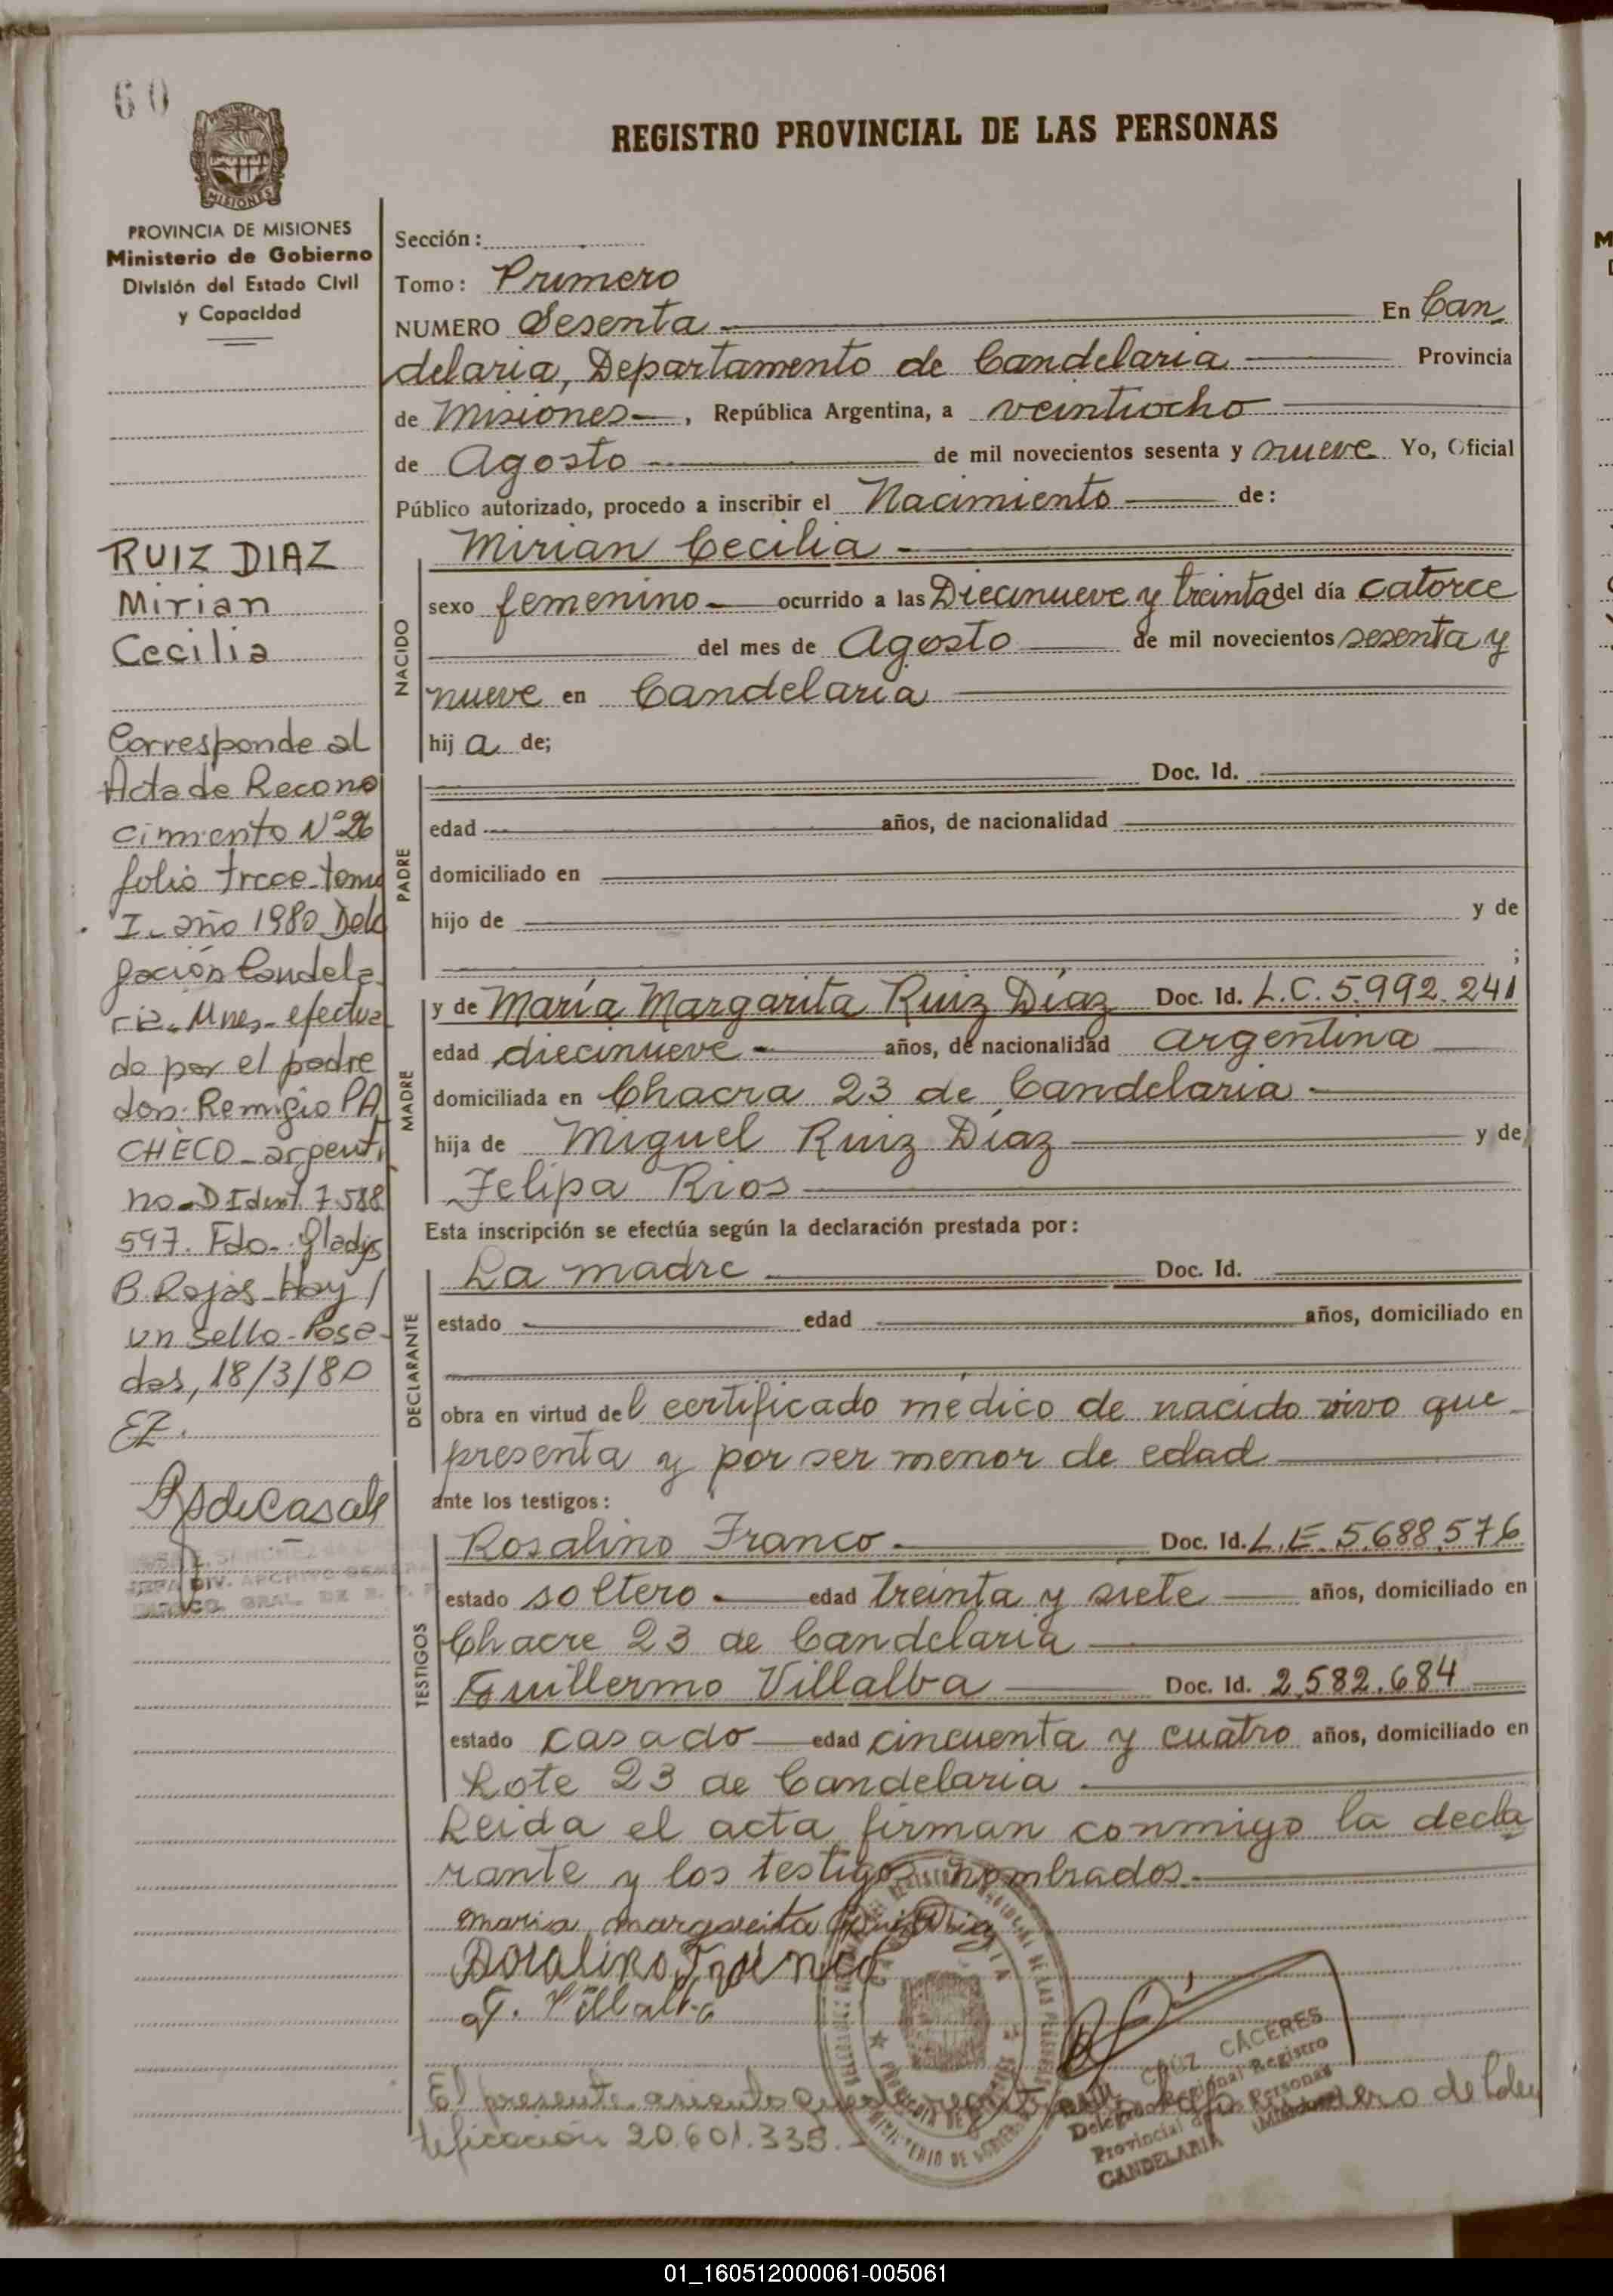 60
REGISTRO PROVINCIAL DE LAS PERSONAS
PROVINCIA DE MISIONES
MISIONES
PROVINCIA DE MISIONES
Ministerio de Gobierno
División del Estado Civil
y Capacidad
RUIZ DIAZ
Mirian
Cecilia
Corresponde al
Acta de Recono
cimiento Nº 26
folio trece tomo
I. año 1980 Dele
gación Candela
ria. Mnes. efectua
do por el padre
don: Remigio PA
CHECO argenti
no. D Ident. 7588
597. Fdo. Gladys
B. Rojas. Hay /
un sello. Posa
das, 18/3/80
EZ.
JEFA DIV. ARCHIVO GENERAL
Sección:
Tomo: Primero
NUMERO Sesenta En Can
delaria, Departamento de Candelaria Provincia
de Misiones, República Argentina, a veintiocho
de Agosto de mil novecientos sesenta y nueve Yo, Oficial
Público autorizado, procedo a inscribir el Nacimiento de:
NACIDO
Mirian Cecilia
sexo femenino ocurrido a las Diecinueve y treinta del día catorce
del mes de Agosto de mil novecientos sesenta y
nueve en Candelaria
hija de;
PADRE
Doc. Id.
edad años, de nacionalidad
domiciliado en
hijo de y de
;
MADRE
y de María Margarita Ruiz Díaz Doc. Id. L.C. 5.992.241
edad diecinueve años, de nacionalidad argentina
domiciliada en Chacra 23 de Candelaria
hija de Miguel Ruiz Díaz y de
Felipa Rios
Esta inscripción se efectúa según la declaración prestada por:
DECLARANTE
La madre Doc. Id.
estado edad años, domiciliado en
obra en virtud del certificado médico de nacido vivo que
presenta y por ser menor de edad
ante los testigos:
TESTIGOS
Rosalino Franco Doc. Id. L.E. 5.688.576
estado soltero edad treinta y siete años, domiciliado en
Chacre 23 de Candelaria
Guillermo Villalba Doc. Id. 2.582.684
estado casado edad cincuenta y cuatro años, domiciliado en
Lote 23 de Candelaria
Leida el acta firman conmigo la decla
rante y los testigos nombrados.
maria margareita Ruiz Diaz
Rosalino Franco
G. Villalba
CRUZ CÁCERES
Delegado Regional Registro
Provincial de las Personas
CANDELARIA (Misiones)
El presente asiento
tificación 20.601.335.
01_160512000061-005061